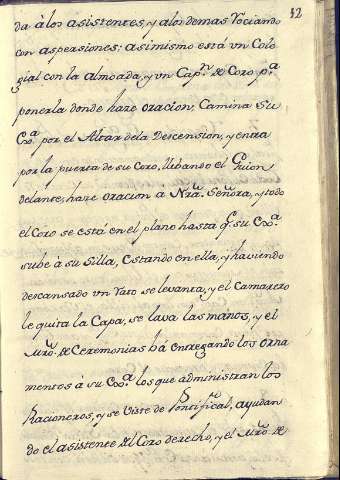 42
da à los asistentes, y à los demas rociando
con aspersiones: asimismo está vn Cole
gial con la almoada, y vn Cap.ⁿ de Coro p.ᵃ
ponerla donde haze oracion. Camina Su
Ex.ᵃ por el Altar dela Descension, y entra
por la puerta de su Coro, llebando el Guion
delante, haze oracion à Nrã. Señora, y todo
el Coro se està en el plano hasta q̃. su Ex.ᵃ
sube à su Silla, Estando en ella, y haviendo
descansado vn rato se levanta, y el Camarero
le quita la Capa, se laba las manos, y el
Mrõ. de Ceremonias bà entregando los orna
mentos à su Ex.ᵃ los que administran los
Racioneros, y se viste de Pontifical, ayudan
do el asistente del Coro derecho, y el Mrõ. de